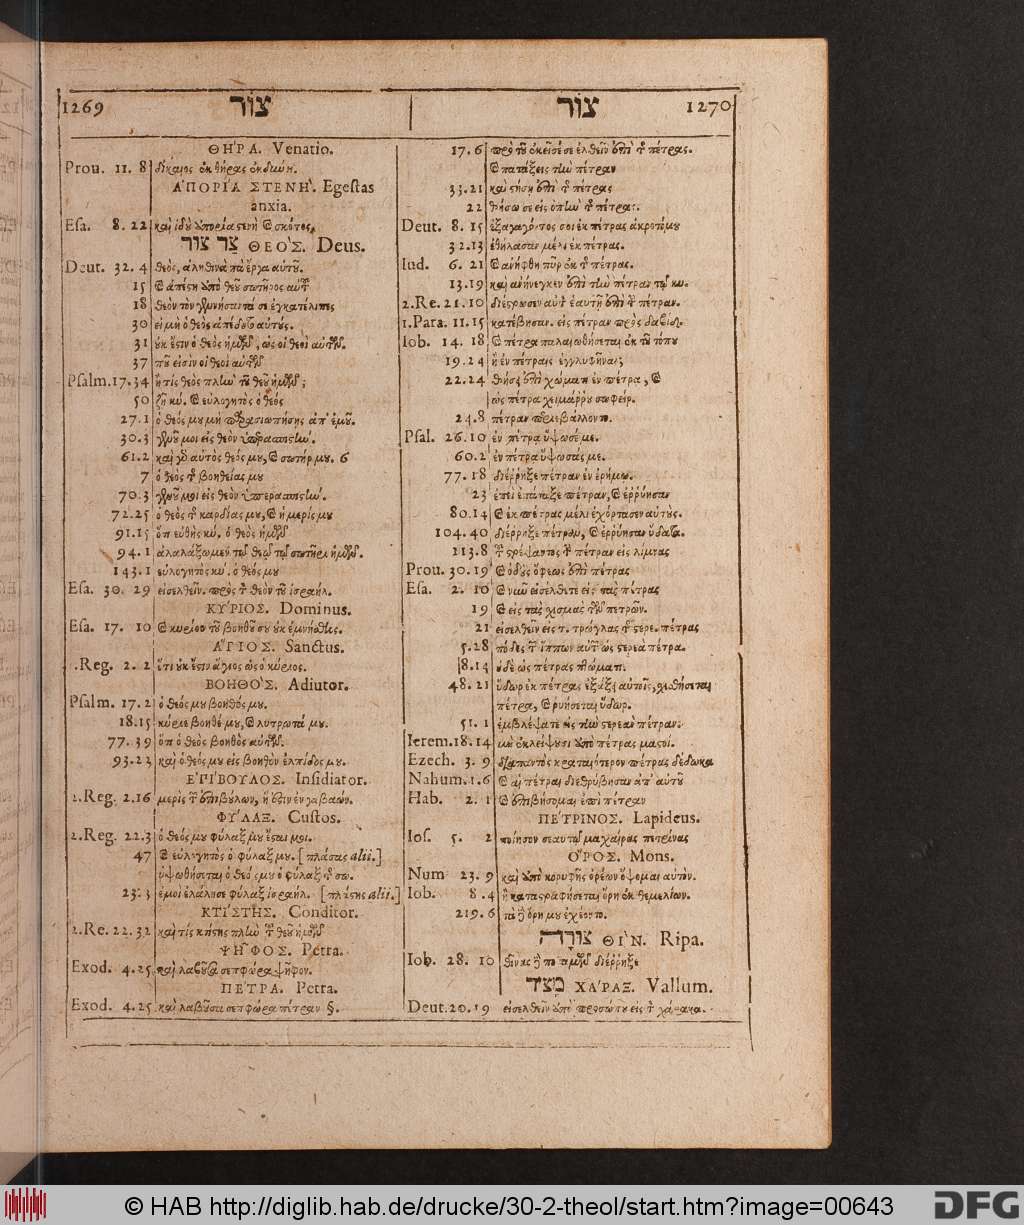 1269 צוֹר
צוֹר 1270
ΘΗΡΑ. Venatio.
Prou. 11. 8 δίκαιος ἐκ θήρας
ΑΠΟΡΙΑ ΣΤΕΝΗ. Egestas
anxia.
Esa. 8. 22 καὶ ἰδοὺ ἀπορία στενὴ σκότος,
צֻר צוּר ΘΕΟΣ. Deus.
Deut. 32. 4 θεὸς, ἀληθινὰ τὰ ἔργα αὐτοῦ.
15
18 θεὸν τὸν γεννήσαντά σε ἐγκατέλιπες
30 εἰ μὴ ὁ θεὸς ἀπέδοτο αὐτούς.
31 οὐκ ἔστιν ὁ θεὸς ἡμῶν, ὡς οἱ θεοὶ αὐτῶν.
37 ποῦ εἰσὶν οἱ θεοὶ αὐτῶν
Psalm. 17. 34 ἢ τίς θεὸς πλὴν τοῦ θεοῦ ἡμῶν;
50 ζῇ κύ. καὶ εὐλογητὸς ὁ θεός
27. 1 ὁ θεός μου μὴ παρασιωπήσῃς ἀπ' ἐμοῦ.
30. 3 γενοῦ μοι εἰς θεὸν ὑπερασπιστήν.
61. 2 καὶ γὰρ αὐτὸς θεός μου, καὶ σωτήρ μου. 6
7 ὁ θεὸς τῆς βοηθείας μου
70. 3 γενοῦ μοι εἰς θεὸν ὑπερασπιστήν.
72. 25 ὁ θεὸς τῆς καρδίας μου, καὶ ἡ μερίς μου
91. 15 ὅτι εὐθὴς κύ. ὁ θεὸς ἡμῶν
94. 1 ἀλαλάξωμεν τῷ θεῷ τῷ σωτῆρι ἡμῶν.
143. 1 εὐλογητὸς κύ. ὁ θεός μου
Esa. 30. 29 εἰσελθεῖν. πρὸς τὸν θεὸν τοῦ ἰσραήλ.
ΚΥΡΙΟΣ. Dominus.
Esa. 17. 10 καὶ κυρίου τοῦ βοηθοῦ σου οὐκ ἐμνήσθης.
ΑΓΙΟΣ. Sanctus.
.Reg. 2. 2 ὅτι οὐκ ἔστιν ἅγιος ὡς ὁ κύριος.
ΒΟΗΘΟΣ. Adiutor.
Psalm. 17. 2 ὁ θεός μου βοηθός μου.
18. 15 κύριε βοηθέ μου, καὶ λυτρωτά μου.
77. 39 ὅτι ὁ θεὸς βοηθὸς αὐτῶν.
93. 23 καὶ ὁ θεός μου εἰς βοηθὸν ἐλπίδος μου.
ΕΠΙΒΟΥΛΟΣ. Insidiator.
2. Reg. 2. 16 μερὶς τῶν ἐπιβούλων, ἥ ἐστιν ἐν γαβαών.
ΦΥΛΑΞ. Custos.
2. Reg. 22. 3 ὁ θεός μου φύλαξ μου ἔσται μοι.
47 καὶ εὐλογητὸς ὁ φύλαξ μου. [πλάσας alii.]
ὑψωθήσεται ὁ θεός μου ὁ φύλαξ
23. 3 ἐμοὶ ἐλάλησε φύλαξ ἰσραήλ. [πλάστης alii.]
ΚΤΙΣΤΗΣ. Conditor.
2. Re. 22. 32 καὶ τίς κτίστης πλὴν τοῦ θεοῦ ἡμῶν
ΨΗΦΟΣ. Petra.
Exod. 4. 25 καὶ λαβοῦσα σεπφώρα ψῆφον.
ΠΕΤΡΑ. Petra.
Exod. 4. 25 καὶ λαβοῦσα σεπφώρα πέτραν §.
17. 6 πρὸ τοῦ ἐκεῖσέ σε ἐλθεῖν ἐπὶ τῆς πέτρας.
καὶ πατάξεις τὴν πέτραν
33. 21 καὶ στήσῃ ἐπὶ τῆς πέτρας
22 θήσω σε εἰς ὀπὴν τῆς πέτρας.
Deut. 8. 15 ἐξαγαγόντος σοι ἐκ πέτρας ἀκροτόμου
32. 13 ἐθήλασαν μέλι ἐκ πέτρας.
Iud. 6. 21 καὶ ἀνήφθη πῦρ ἐκ τῆς πέτρας.
13. 19 καὶ ἀνήνεγκεν ἐπὶ τὴν πέτραν τῷ κυ.
2. Re. 21. 10 ἑαυτῇ ἐπὶ τὴν πέτραν.
1. Para. 11. 15 κατέβησαν. εἰς πέτραν πρὸς δαβίδ.
Iob. 14. 18 καὶ πέτρα παλαιωθήσεται ἐκ τοῦ τόπου
19. 24 ἢ ἐν πέτραις ἐγγλυφῆναι;
22. 24 θήσῃ ἐπὶ χώματι ἐν πέτρα, καὶ
ὡς πέτρα χειμάρρου σωφείρ.
24. 8 πέτραν περιεβάλλοντο.
Psal. 26. 10 ἐν πέτρᾳ ὕψωσέ με.
60. 2 ἐν πέτρᾳ ὕψωσάς με.
77. 18 διέρρηξε πέτραν ἐν ἐρήμῳ.
23 ἐπεὶ ἐπάταξε πέτραν, καὶ ἐρρύησαν
80. 14 καὶ ἐκ πέτρας μέλι ἐχόρτασεν αὐτούς.
104. 40 διέρρηξε πέτραν, καὶ ἐρρύησαν ὕδατα.
113. 8 τοῦ στρέψαντος τὴν πέτραν εἰς λίμνας
Prou. 30. 19 καὶ ὁδοὺς ὄφεως ἐπὶ πέτρας
Esa. 2. 10 καὶ νῦν εἰσέλθετε εἰς τὰς πέτρας
19 καὶ εἰς τὰς σχισμὰς τῶν πετρῶν.
21 εἰσελθεῖν εἰς τ. τρώγλας τῆς στερε. πέτρας
5. 28 πόδες τῶν ἵππων αὐτῶν ὡς στερεὰ πέτρα.
8. 14 οὐδὲ ὡς πέτρας πτώματι.
48. 21 ὕδωρ ἐκ πέτρας ἐξάξει αὐτοῖς, σχισθήσεται
πέτρα, καὶ ῥυήσεται ὕδωρ.
51. 1 ἐμβλέψατε εἰς τὴν στερεὰν πέτραν.
Ierem. 18. 14 μὴ ἐκλείψουσι ἀπὸ πέτρας μαστοί.
Ezech. 3. 9 διαπαντὸς κραταιότερον πέτρας δέδωκα
Nahum. 1. 6 καὶ αἱ πέτραι διεθρύβησαν ἀπ' αὐτοῦ
Hab. 2. 1 καὶ ἐπιβήσομαι ἐπὶ πέτραν
ΠΕΤΡΙΝΟΣ. Lapideus.
Ios. 5. 2 ποίησον σεαυτῷ μαχαίρας πετρίνας
ΟΡΟΣ. Mons.
Num 23. 9 καὶ ἀπὸ κορυφῆς ὀρέων ὄψομαι αὐτόν.
Iob. 8. 4 ἢ καταστραφήσεται ὄρη ἐκ θεμελίων.
219. 6 τὰ ὄρη μου ἐχέοντο.
צוּרָה ΘΙΝ. Ripa.
Iob. 28. 10 θῖνας ποταμῶν διέρρηξε
מְצוֹר ΧΑΡΑΞ. Vallum.
Deut. 20. 19 εἰσελθεῖν ἀπὸ προσώπου εἰς τ. χάρακα.
© HAB http://diglib.hab.de/drucke/30-2-theol/start.htm?image=00643
DFG